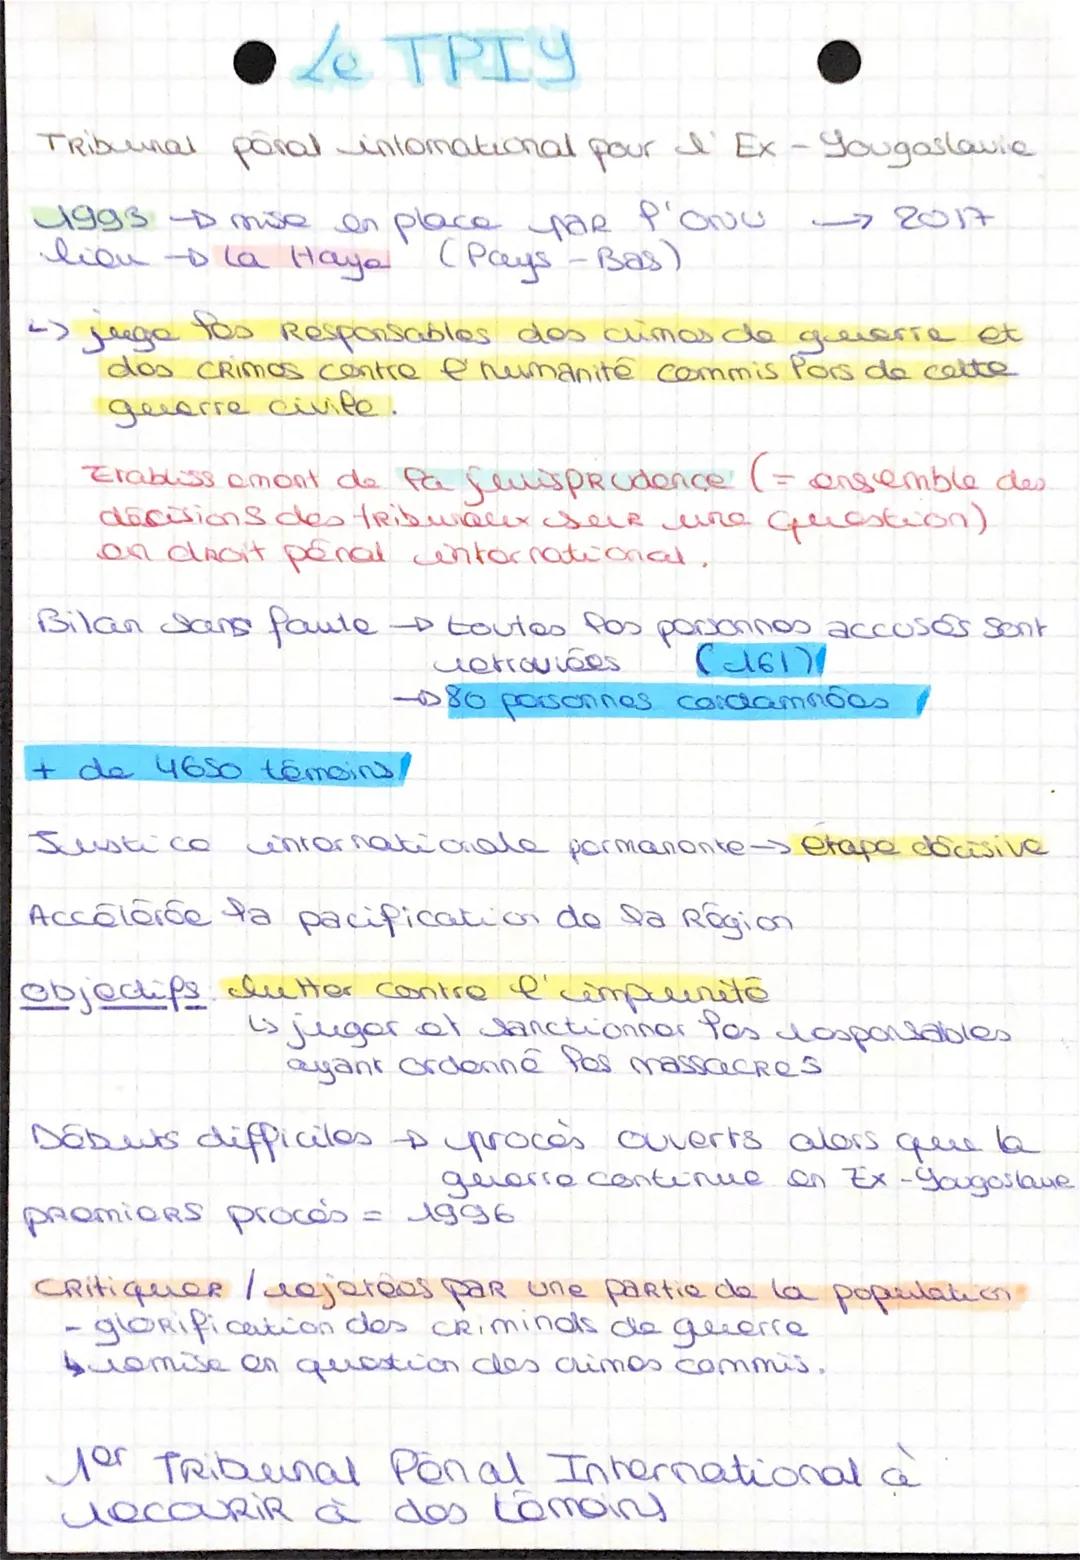 Le TPIY
Tribunal pénal international pour l'Ex-Yougoslavie
1993 → mise en place par l'ONU → 2017
lieu → La Haye (Pays-Bas)
↳ juge les Responsables des crimes de guerre et
des crimes contre l'humanité commis lors de cette
guerre civile.
Etablissement de la jurisprudence (= ensemble des
décisions des tribunaux sur une question)
en droit pénal international.
Bilan sans faute → toutes les personnes accusés sont
retrouvées (161)
→ 80 personnes condamnées
+ de 4650 témoins
Justice internationale permanente → étape décisive
Accélérée la pacification de la Région
objectifs: lutter contre l'impunité
↳ juger et sanctionner les responsables
ayant ordonné les massacres
Débuts difficiles → procès ouverts alors que la
guerre continue en Ex-Yougoslavie
premiers procès = 1996
critiquer / rejetées par une partie de la population
- glorification des criminels de guerre
↳ remise en question des crimes commis.
1er Tribunal Pénal International à
recourir à des témoins